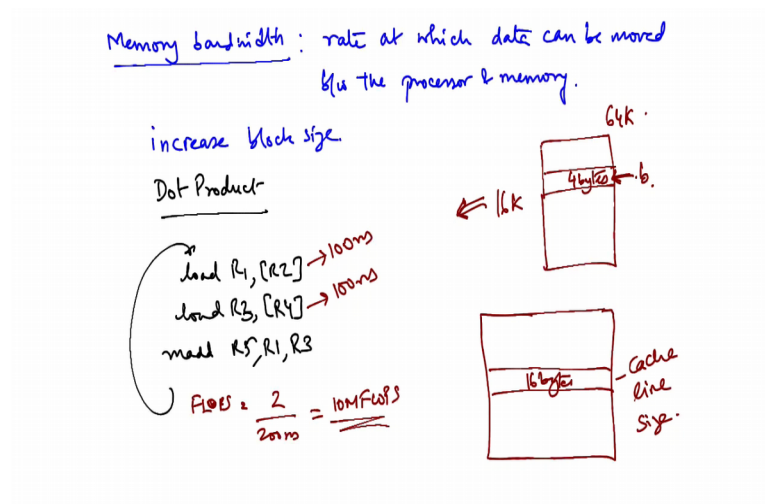 Memory bandwidth : rate at which data can be moved
b/w the processor & memory.
increase block size.
Dot Product
64K.
4bytes ← b.
⇐ 16K
load R1, [R2] → 100ns
load R3, [R4] → 100ns
madd R5, R1, R3
FLOPS = 2 / 200ns = 10MFLOPS
16bytes
cache
line
size.